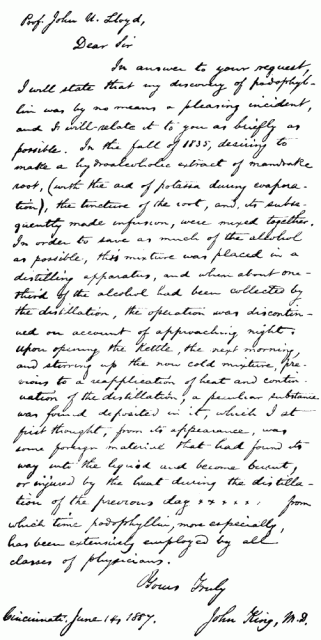 Prof. John U. Lloyd,
Dear Sir
In answer to your request,
I will state that my discovery of podophyl-
lin was by no means a pleasing incident,
and I will relate it to you as briefly as
possible. In the fall of 1835, desiring to
make a hydroalcoholic extract of mandrake
root, (with the aid of potassa during evapora-
tion), the tincture of the root, and its subse-
quently made infusion, were mixed together.
In order to save as much of the alcohol
as possible, this mixture was placed in a
distilling apparatus, and when about one-
third of the alcohol had been collected by
the distillation, the operation was discontin-
ued on account of approaching night.
Upon opening the kettle, the next morning,
and stirring up the now cold mixture, pre-
vious to a reapplication of heat and contin-
uation of the distillation, a peculiar substance
was found deposited in it, which I at
first thought, from its appearance, was
some foreign material that had found its
way into the liquid and become burnt,
or injured by the heat during the distilla-
tion of the previous day * * * * * from
which time podophyllin, more especially,
has been extensively employed by all
classes of physicians.
Yours Truly
John King, M.D.
Cincinnati. June 14, 1887.